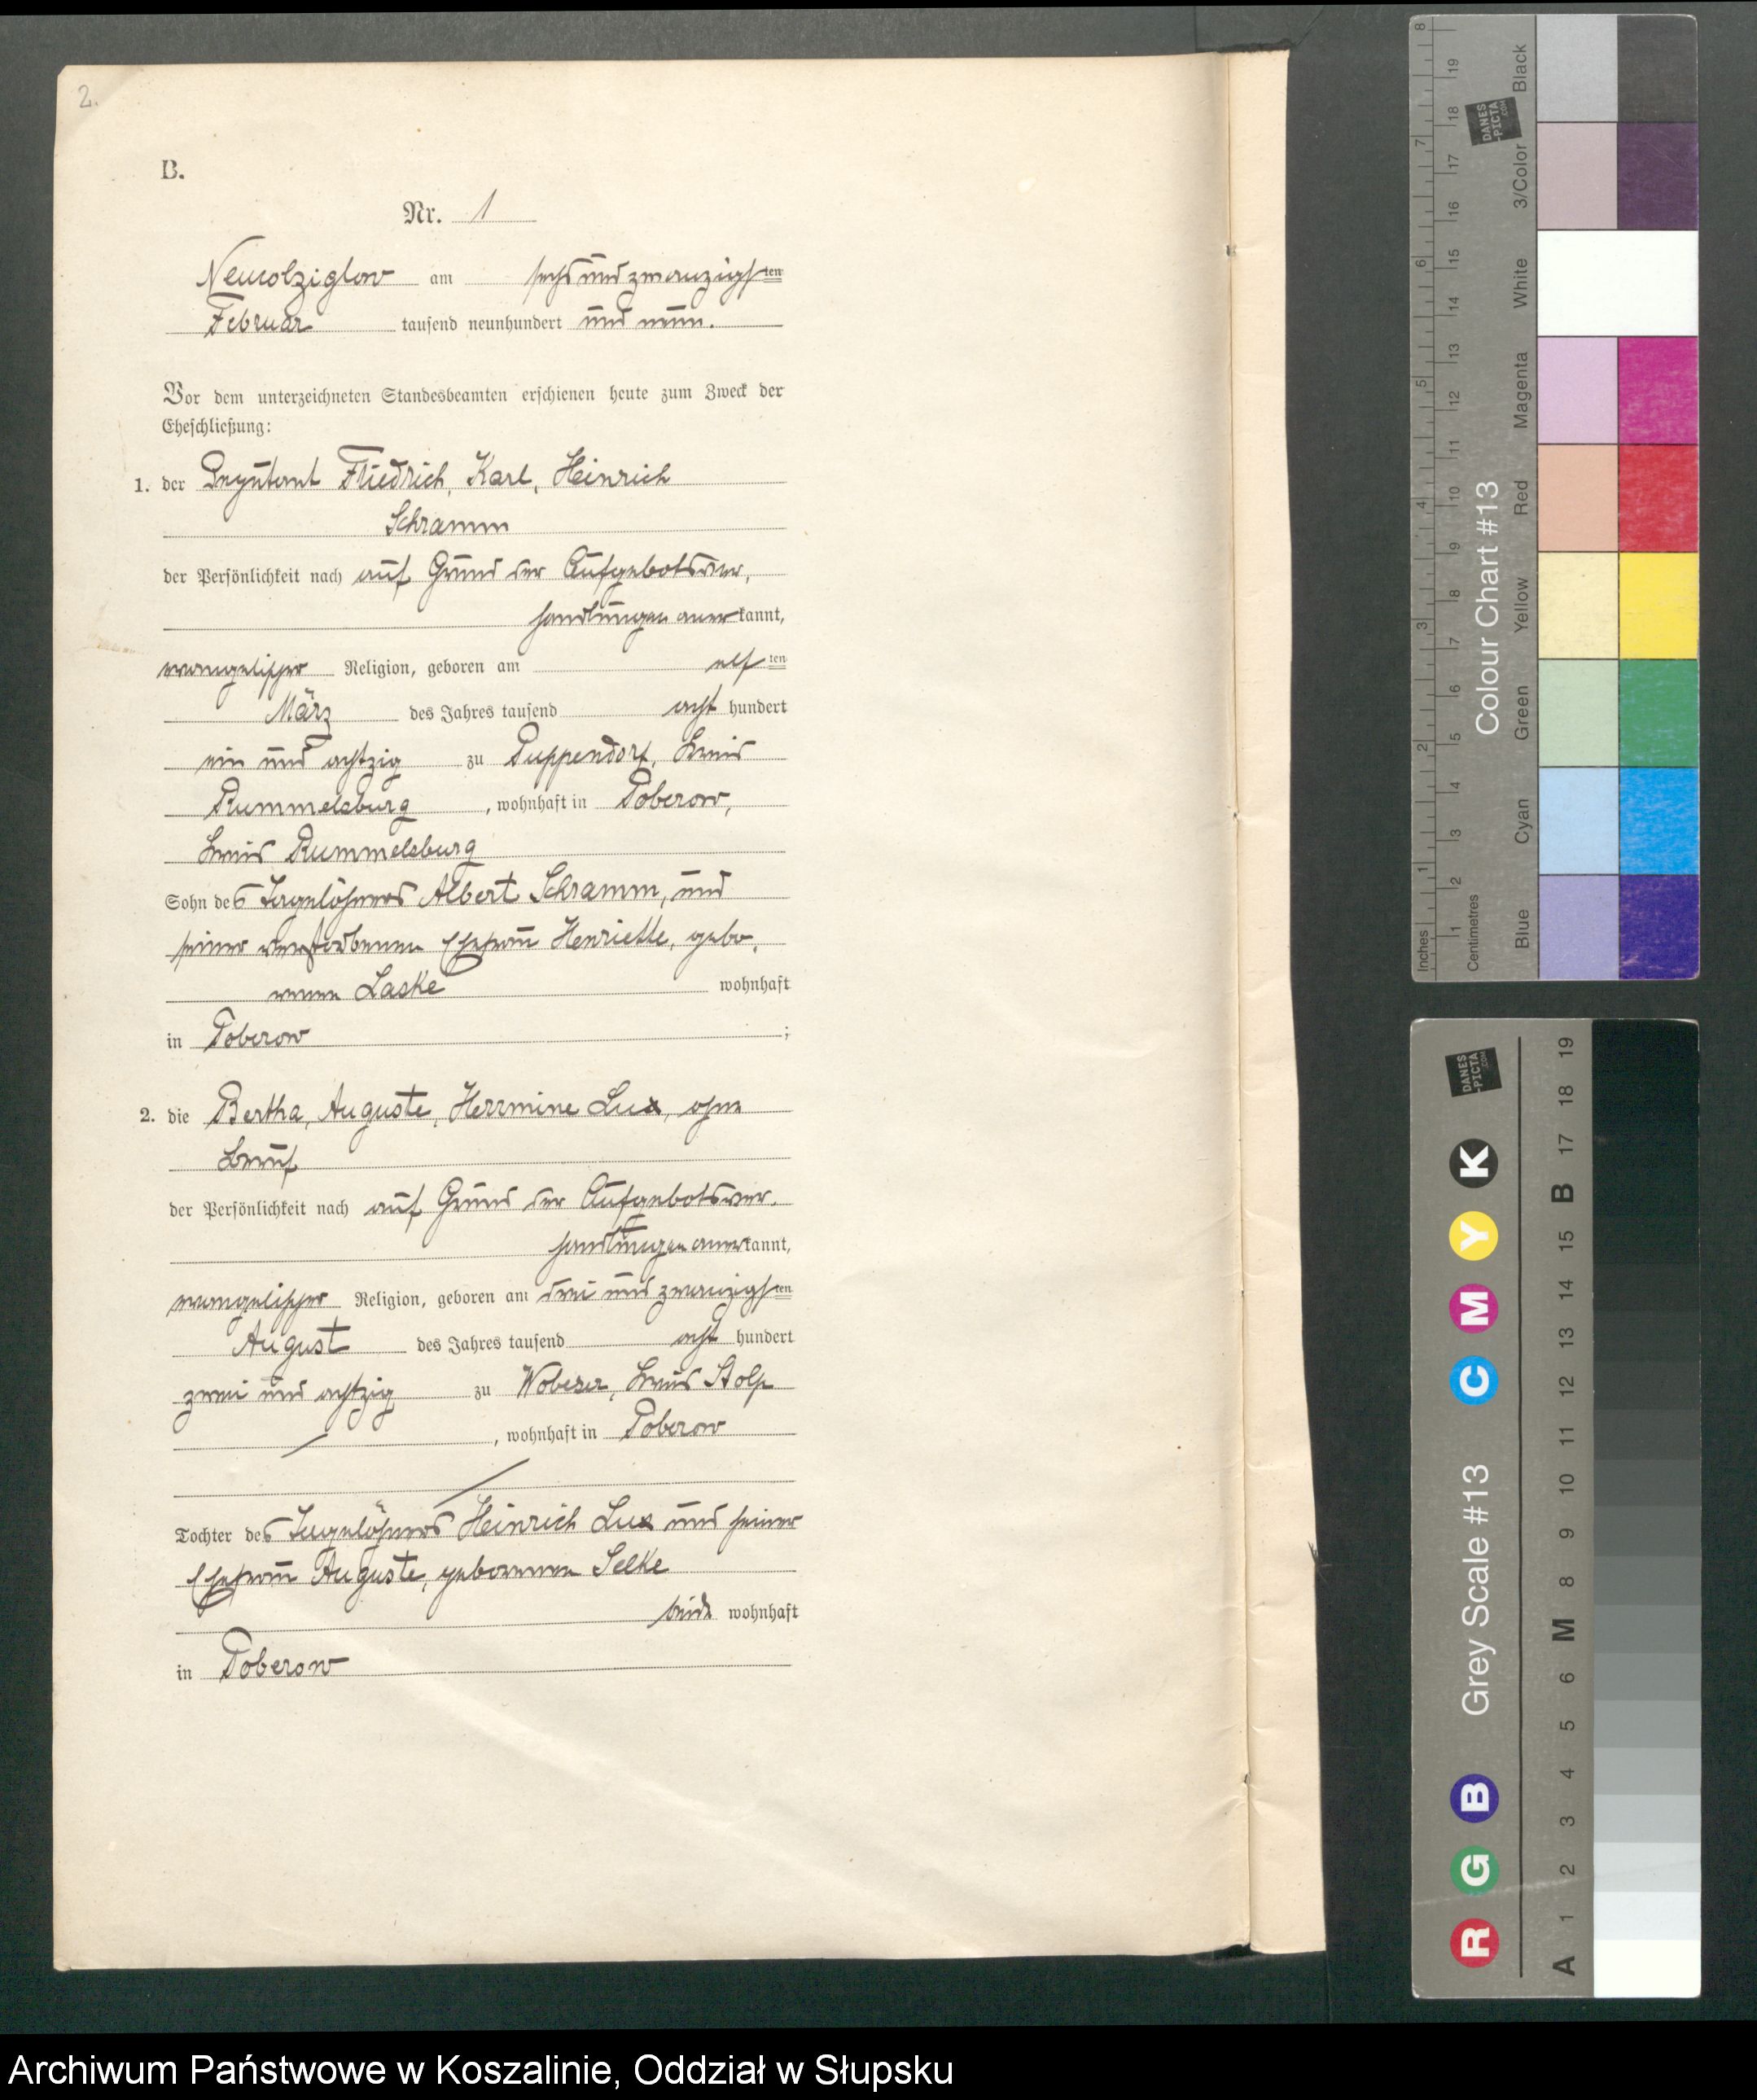 2.
B.
Nr. 1
Neukolziglow am sechs und zwanzigsten
Februar tausend neunhundert und neun.
Vor dem unterzeichneten Standesbeamten erschienen heute zum Zweck der
Eheschließung:
1. der Deputant Friedrich, Karl, Heinrich
Schramm
der Persönlichkeit nach auf Grund der Aufgebotsver,
handlungen anerkannt,
evangelischer Religion, geboren am elften
März des Jahres tausend acht hundert
ein und achtzig zu Puppendorf, Kreis
Rummelsburg, wohnhaft in Poberow,
Kreis Rummelsburg
Sohn des Tagelöhners Albert Schramm, und
seiner verstorbenen Ehefrau Henriette, gebo,
renen Laske wohnhaft
in Poberow;
2. die Bertha, Auguste, Herrmine Lux, ohne
Beruf
der Persönlichkeit nach auf Grund der Aufgebotsver,
handlungen anerkannt,
evangelischer Religion, geboren am drei und zwanzigsten
August des Jahres tausend acht hundert
zwei und achtzig zu Wobeser, Kreis Stolp
, wohnhaft in Poberow
Tochter des Tagelöhners Heinrich Lux und seiner
Ehefrau Auguste, geborenen Selke
beide wohnhaft
in Poberow
Inches 1 2 3 4 5 6 7 8
Centimetres 1 2 3 4 5 6 7 8 9 10 11 12 13 14 15 16 17 18 19
DANES
-PICTA
.COM
Colour Chart #13
Blue Cyan Green Yellow Red Magenta White 3/Color Black
DANES
-PICTA
.COM
R G B Grey Scale #13 C M Y K
A 1 2 3 4 5 6 M 8 9 10 11 12 13 14 15 B 17 18 19
Archiwum Państwowe w Koszalinie, Oddział w Słupsku